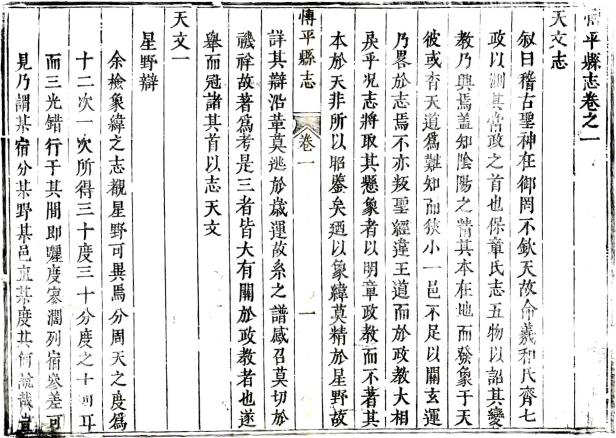 博平縣志卷之一
天文志
叙曰稽古聖神在御罔不欽天故命羲和氏齊七
政以測其當政之首也保章氏志五物以詔其變
教乃興焉盖知隂陽之精其本在地而發象于天
彼或育天道爲難知而狄小一邑不足以關玄運
乃畧於志焉不亦叛聖經違王道而於政教大相
戾乎况志將取其懸象者以明章政教而不著其
本於天非所以昭鑒矣廼以象緯莫精於星野故
博平縣志
卷一
一
詳其辯沿革莫逃於歲運故系之譜感召莫切於
禨祥故著爲考是三者皆大有關於政教者也遂
舉而冠諸其首以志天文
天文一
星野辯
余檢象緯之志觀星野可異焉分周天之度爲
十二次一次所得三十度三十分度之十四耳
而三光錯行于其間即躔度寥濶列宿叅差可
見乃謂某宿分某野某邑直某度其何㨿哉豈